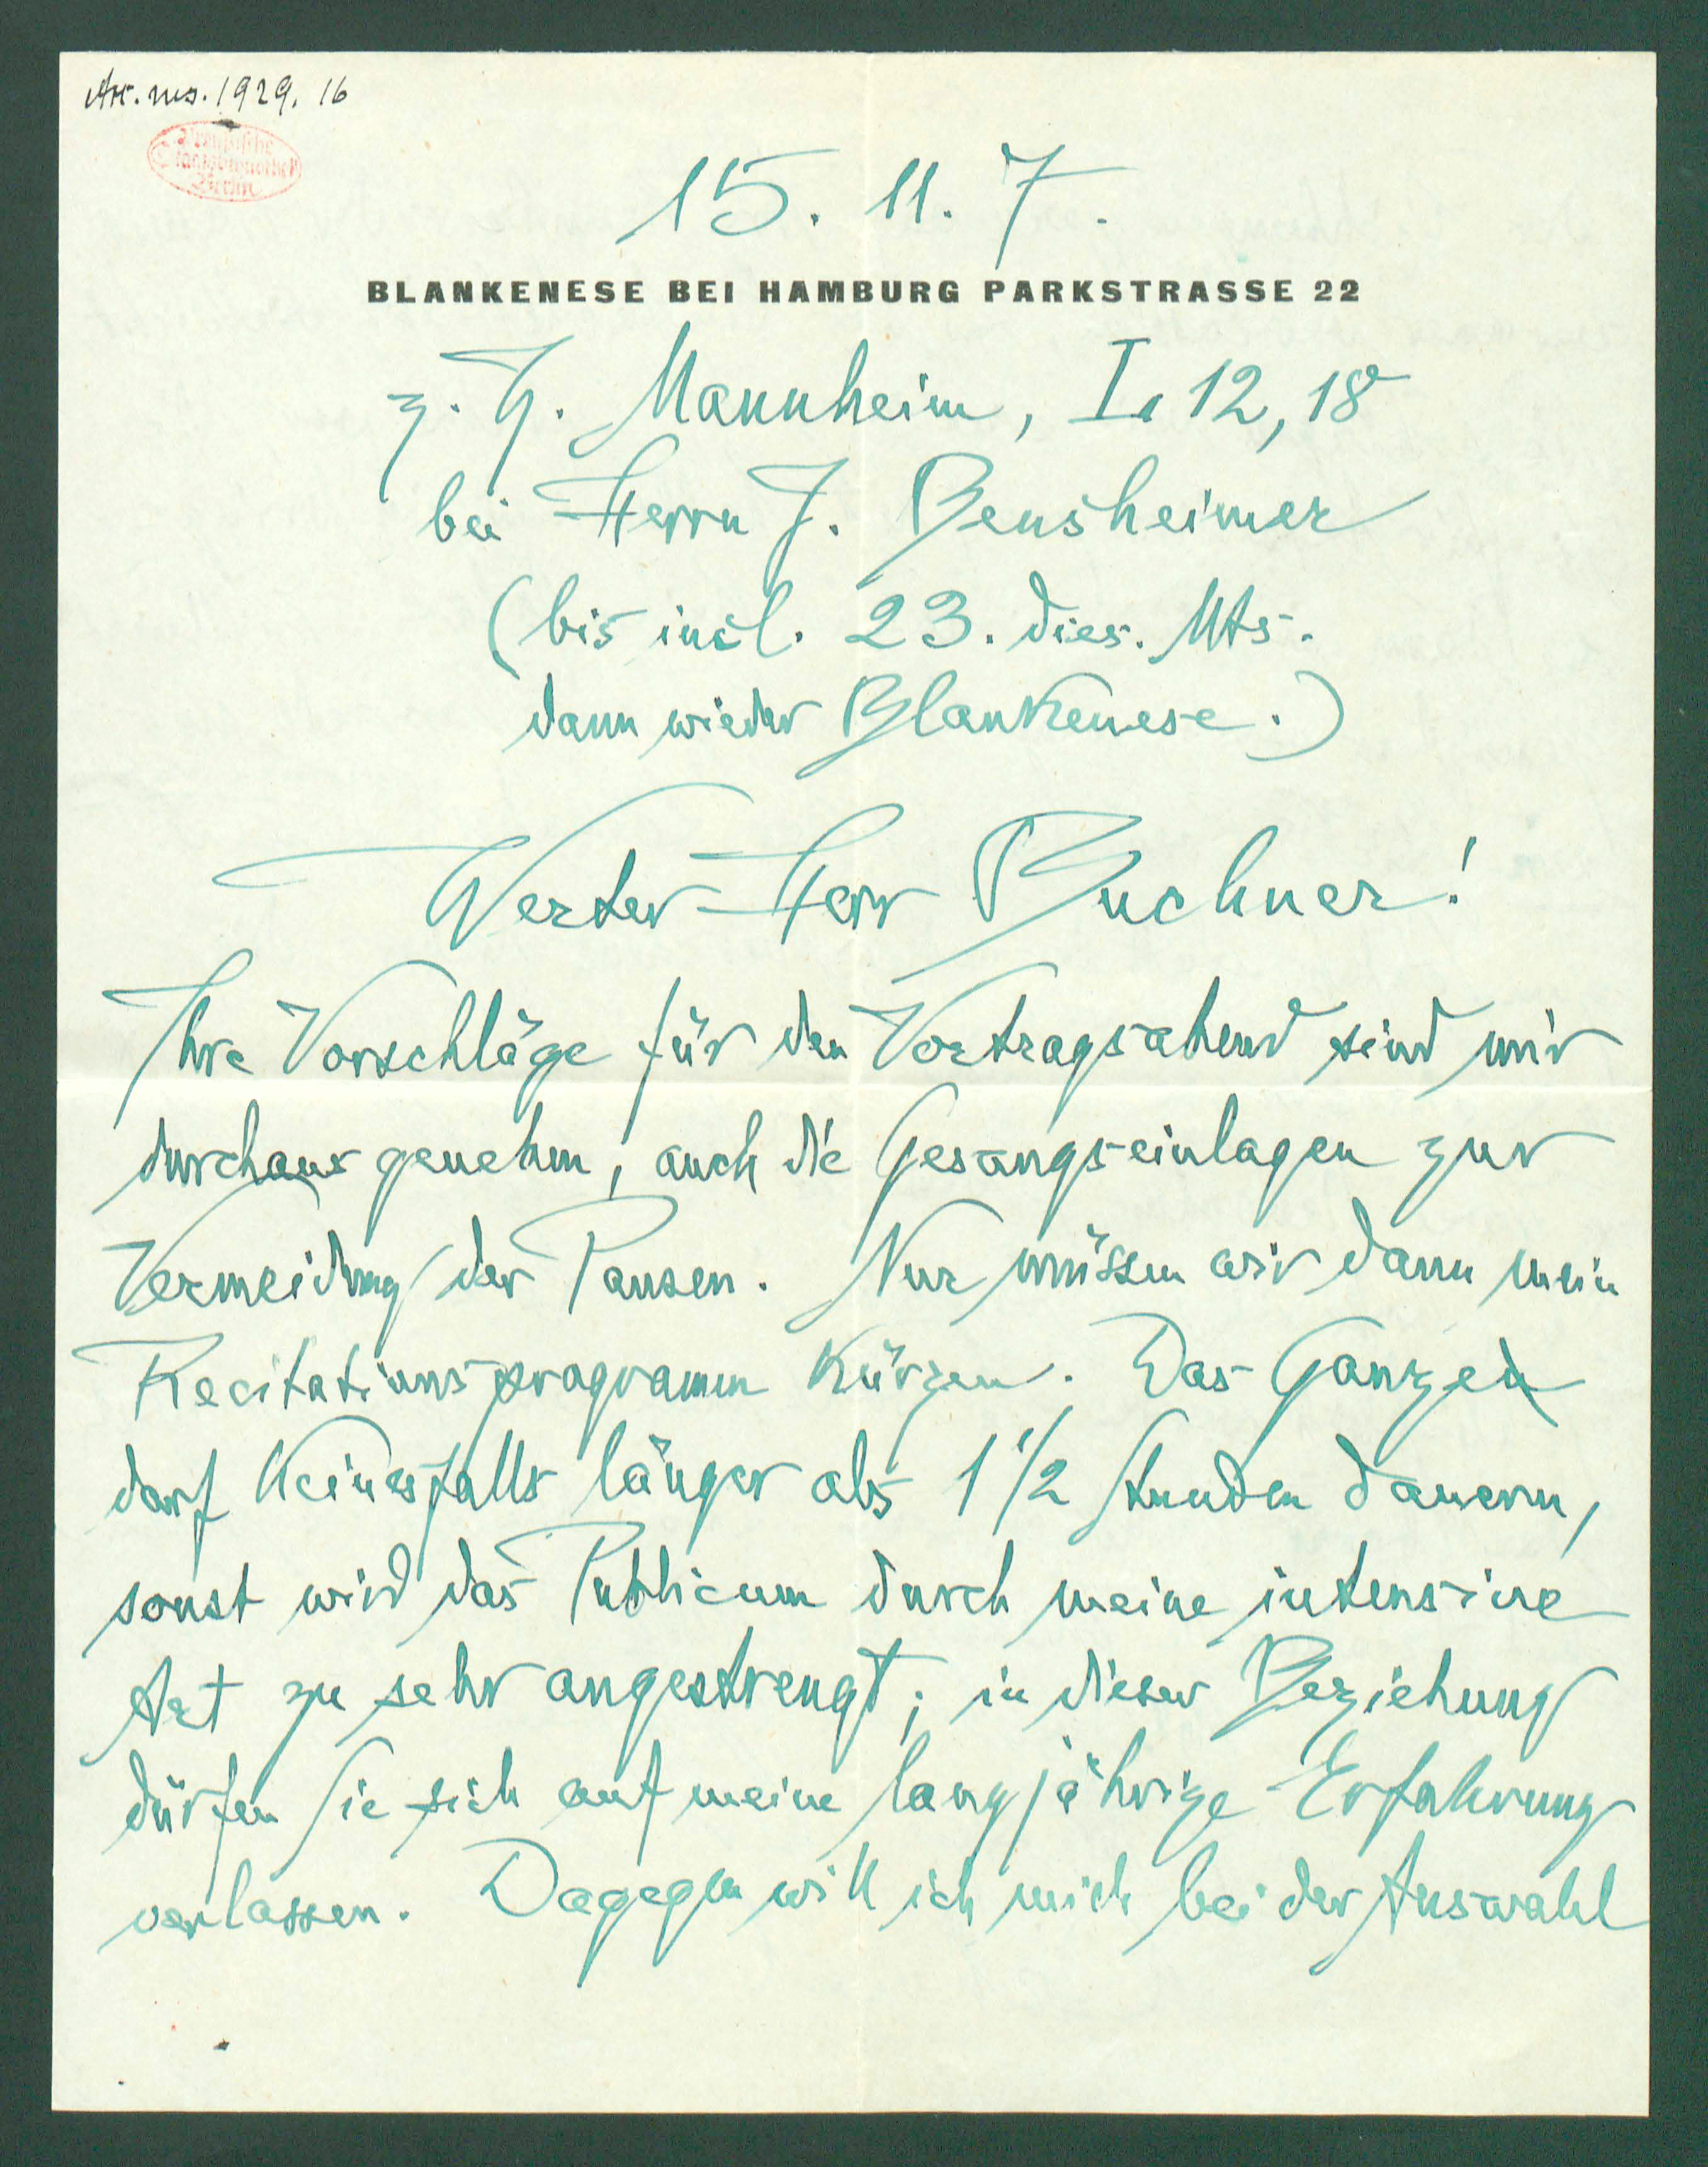 Acc. ms. 1929. 16
Preußische
Staatsbibliothek
Berlin
15. 11. 7.
BLANKENESE BEI HAMBURG PARKSTRASSE 22
z. Z. Mannheim, L. 12, 18
bei Herrn J. Bensheimer
(bis incl. 23. dies. Mts.
dann wieder Blankenese.)
Werter Herr Buchner!
Ihre Vorschläge für den Vortragsabend sind mir
durchaus genehm, auch die Gesangseinlagen zur
Vermeidung der Pausen. Nur müssen wir dann mein
Recitationsprogramm kürzen. Das Ganze
darf keinesfalls länger als 1 1/2 Stunden dauern,
sonst wird das Publicum durch meine intensive
Art zu sehr angestrengt; in dieser Beziehung
dürfen Sie sich auf meine langjährige Erfahrung
verlassen. Dagegen will ich mich bei der Auswahl